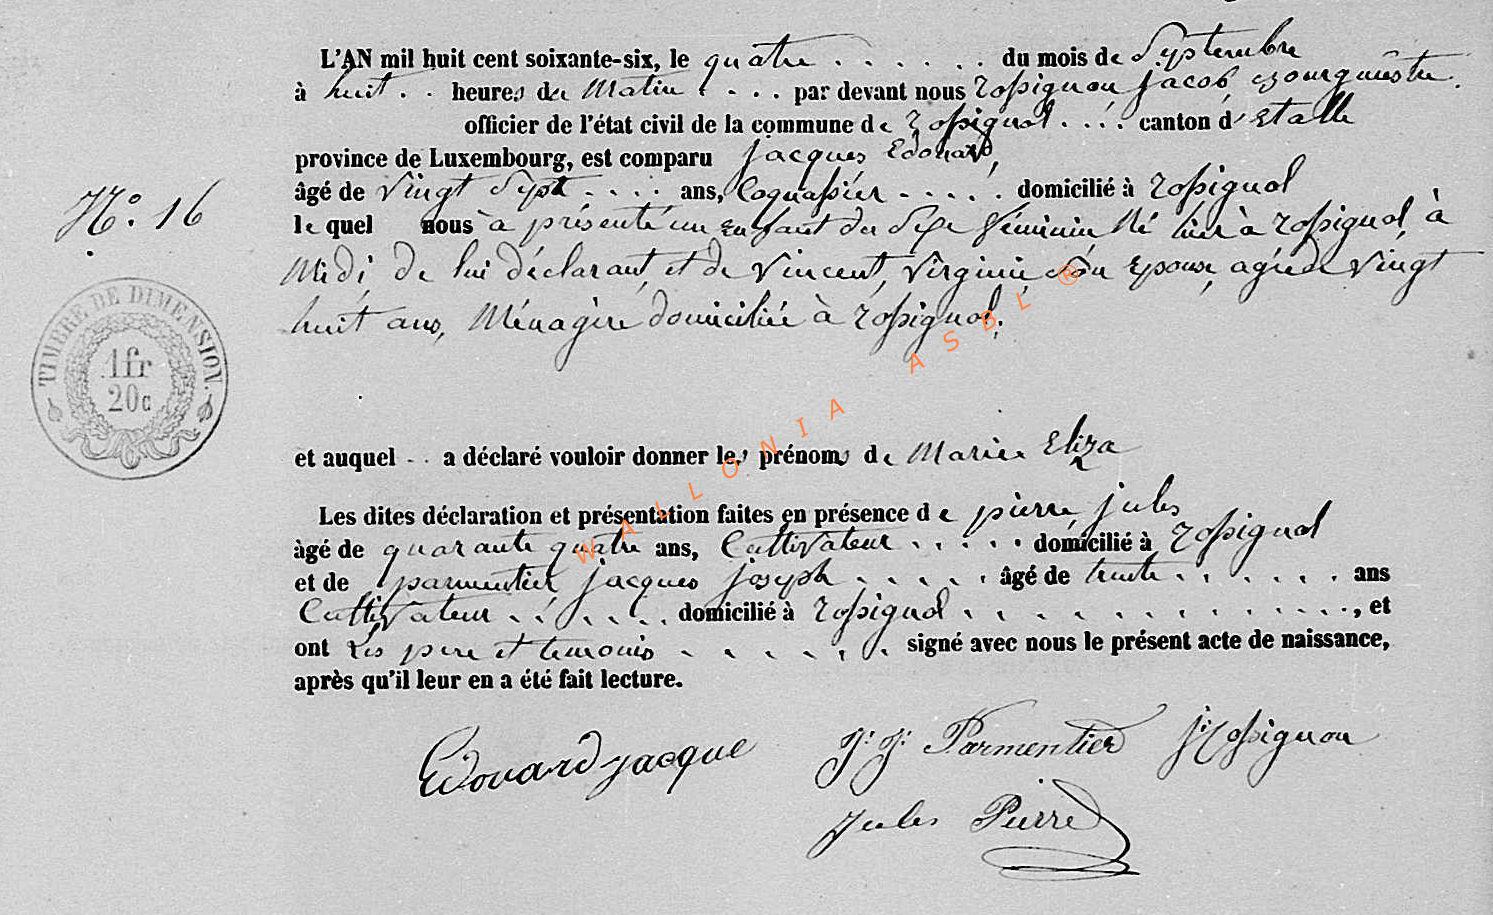 L'AN mil huit cent soixante-six, le quatre . . . . . . du mois de Septembre
à huit . . heures du Matin . . . . par devant nous Rossignon Jacob, Bourguestre
officier de l'état civil de la commune de Rossignol . . . . canton d'Etalle
province de Luxembourg, est comparu Jacques Edouard,
âgé de Vingt Sept . . . . ans, Coquassier . . . . . domicilié à Rossignol
le quel nous à présenté un Enfant du Sexe féminin Né hier à Rossignol, à
N° 16
Midi, de lui déclarant, et de Vincent, Virginie son Epouse, agée de Vingt
huit ans, Ménagère domiciliée à Rossignol.
TIMBRE DE DIMENSION.
1fr
20c
et auquel . . a déclaré vouloir donner les prénoms de Marie Eliza
Les dites déclaration et présentation faites en présence de pierre, jules
âgé de quarante quatre ans, Cultivateur . . . . . domicilié à Rossignol
et de parmentier jacques joseph . . . . . âgé de trente . . . . . . ans
Cultivateur . . . . . . domicilié à Rossignol . . . . . . . . . . . . . , et
ont Les pere et temoins . . . . . . signé avec nous le présent acte de naissance,
après qu'il leur en a été fait lecture.
Edouard jacque
J. J. Parmentier
J. Rossignon
Jules Pierre
WALLONIA ASBL ®